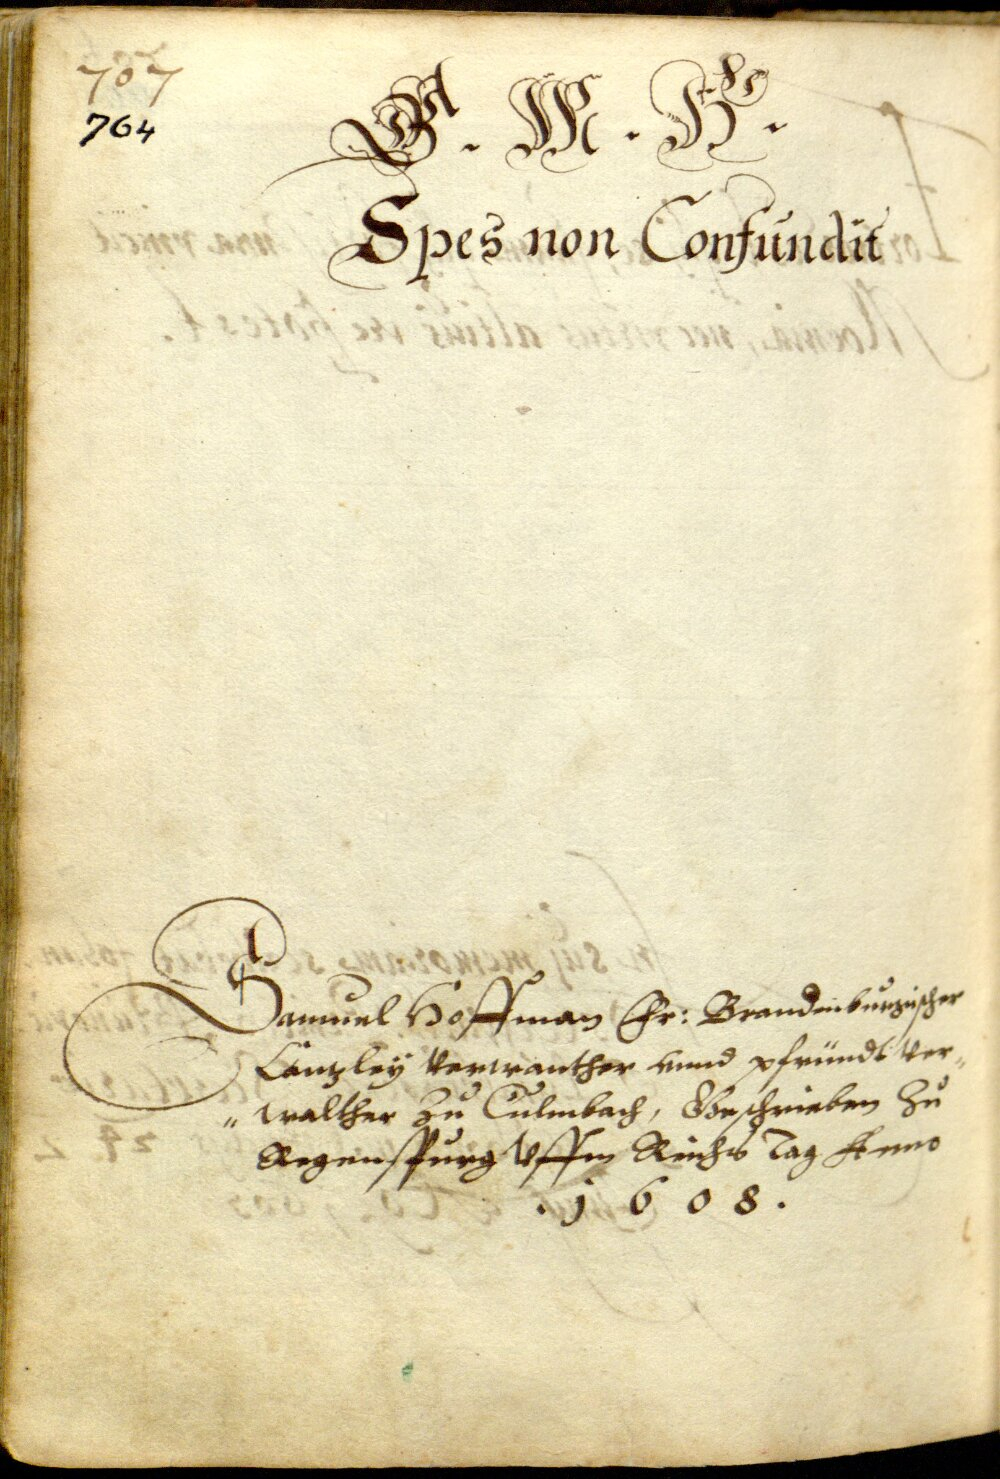 707
764
G. M. H.
Spes non Confundit
Samuel Hoffman Fr: Brandenburgischer
Cantzley Verwanther vnnd pfründt Ver„
„walther zu Culmbach, Geschrieben zu
Regenspurg Vffm Reichs Tag Anno
.1608.